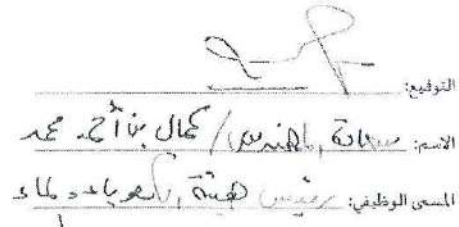 التوقيع:
الاسم: سعادة المهندس/ كمال بن أحمد محمد
المسمى الوظيفي: رئيس هيئة الكهرباء والماء